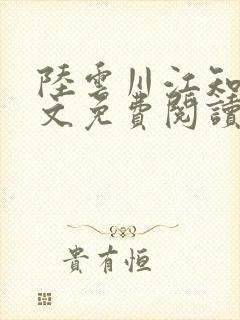 陸雲川江知
文免費閱讀
貴有恒